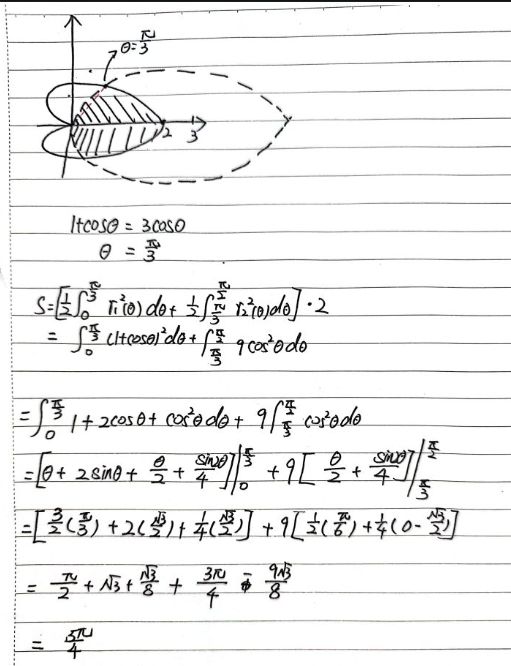 θ=π/3
2
3
1+cosθ = 3cosθ
θ = π/3
S=[1/2∫₀^(π/3) r₁²(θ)dθ + 1/2∫_(π/3)^(π/2) r₂²(θ)dθ]·2
= ∫₀^(π/3) (1+cosθ)²dθ + ∫_(π/3)^(π/2) 9cos²θdθ
=∫₀^(π/3) 1+2cosθ+cos²θdθ + 9∫_(π/3)^(π/2) cos²θdθ
=[θ+2sinθ+θ/2+sin2θ/4]|₀^(π/3) + 9[θ/2+sin2θ/4]|_(π/3)^(π/2)
=[3/2(π/3)+2(√3/2)+1/4(√3/2)] + 9[1/2(π/6)+1/4(0-√3/2)]
= π/2+√3+√3/8+3π/4-9√3/8
= 5π/4